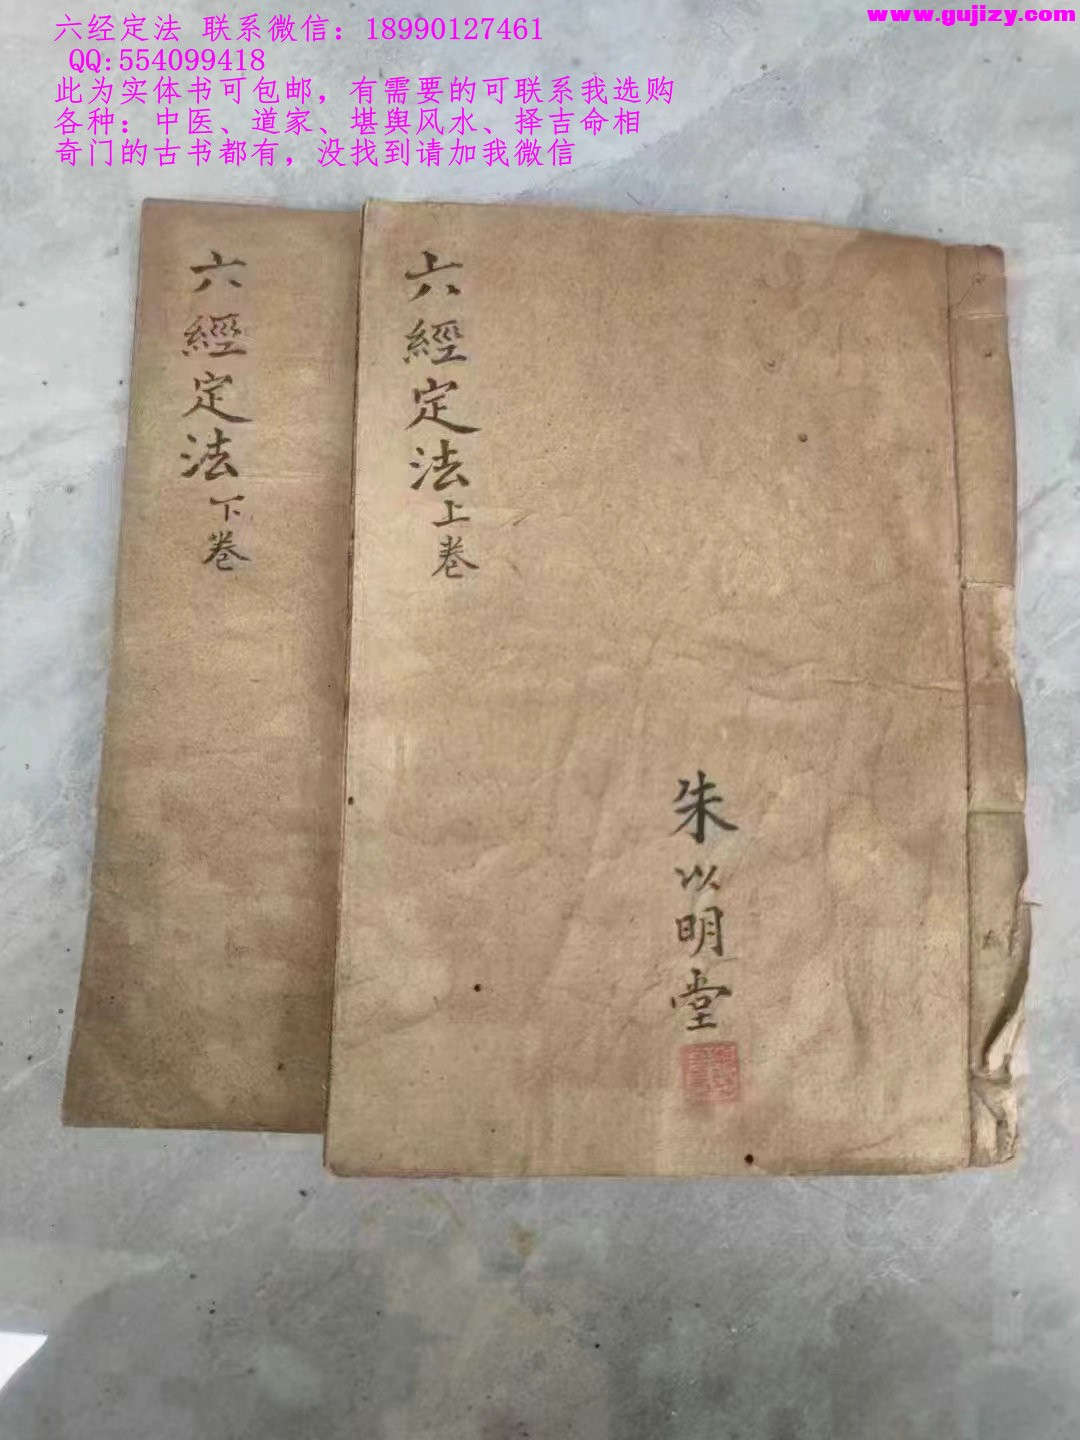 六经定法 联系微信：18990127461
QQ:554099418
此为实体书可包邮，有需要的可联系我选购
各种：中医、道家、堪舆风水、择吉命相
奇门的古书都有，没找到请加我微信
www.gujizy.com
六經定法上卷
朱以明堂
六經定法下卷